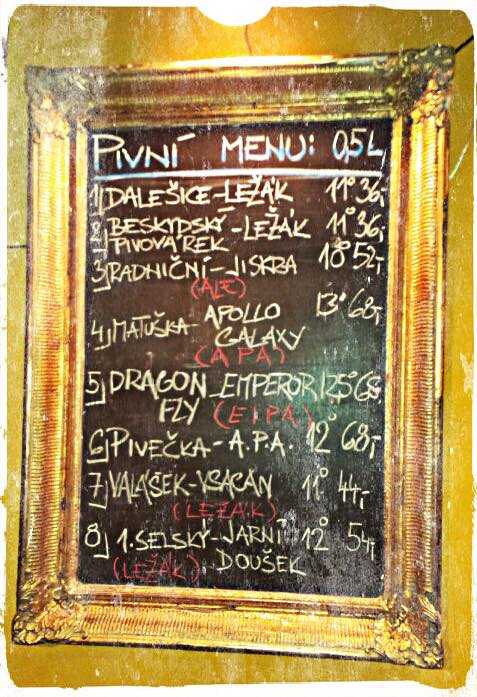 PIVNÍ MENU: 0,5L
1) DALEŠICE-LEŽÁK 11° 36,-
2) BESKYDSKÝ PIVOVÁREK - LEŽÁK 11° 36,-
3) RADNIČNÍ-JISKRA 18° 52,-
(ALE)
4) MATUŠKA- APOLLO GALAXY 13° 68,-
(APA)
5) DRAGON FLY - EMPEROR 12,5° 68,-
(EIPA)
6) PIVEČKA - A.P.A. 12° 68,-
7) VALÁŠEK-VSACAN 11° 44,-
(LEŽÁK)
8) 1.SELSKÝ-JARNÍ DOUŠEK 12° 54,-
(LEŽÁK)